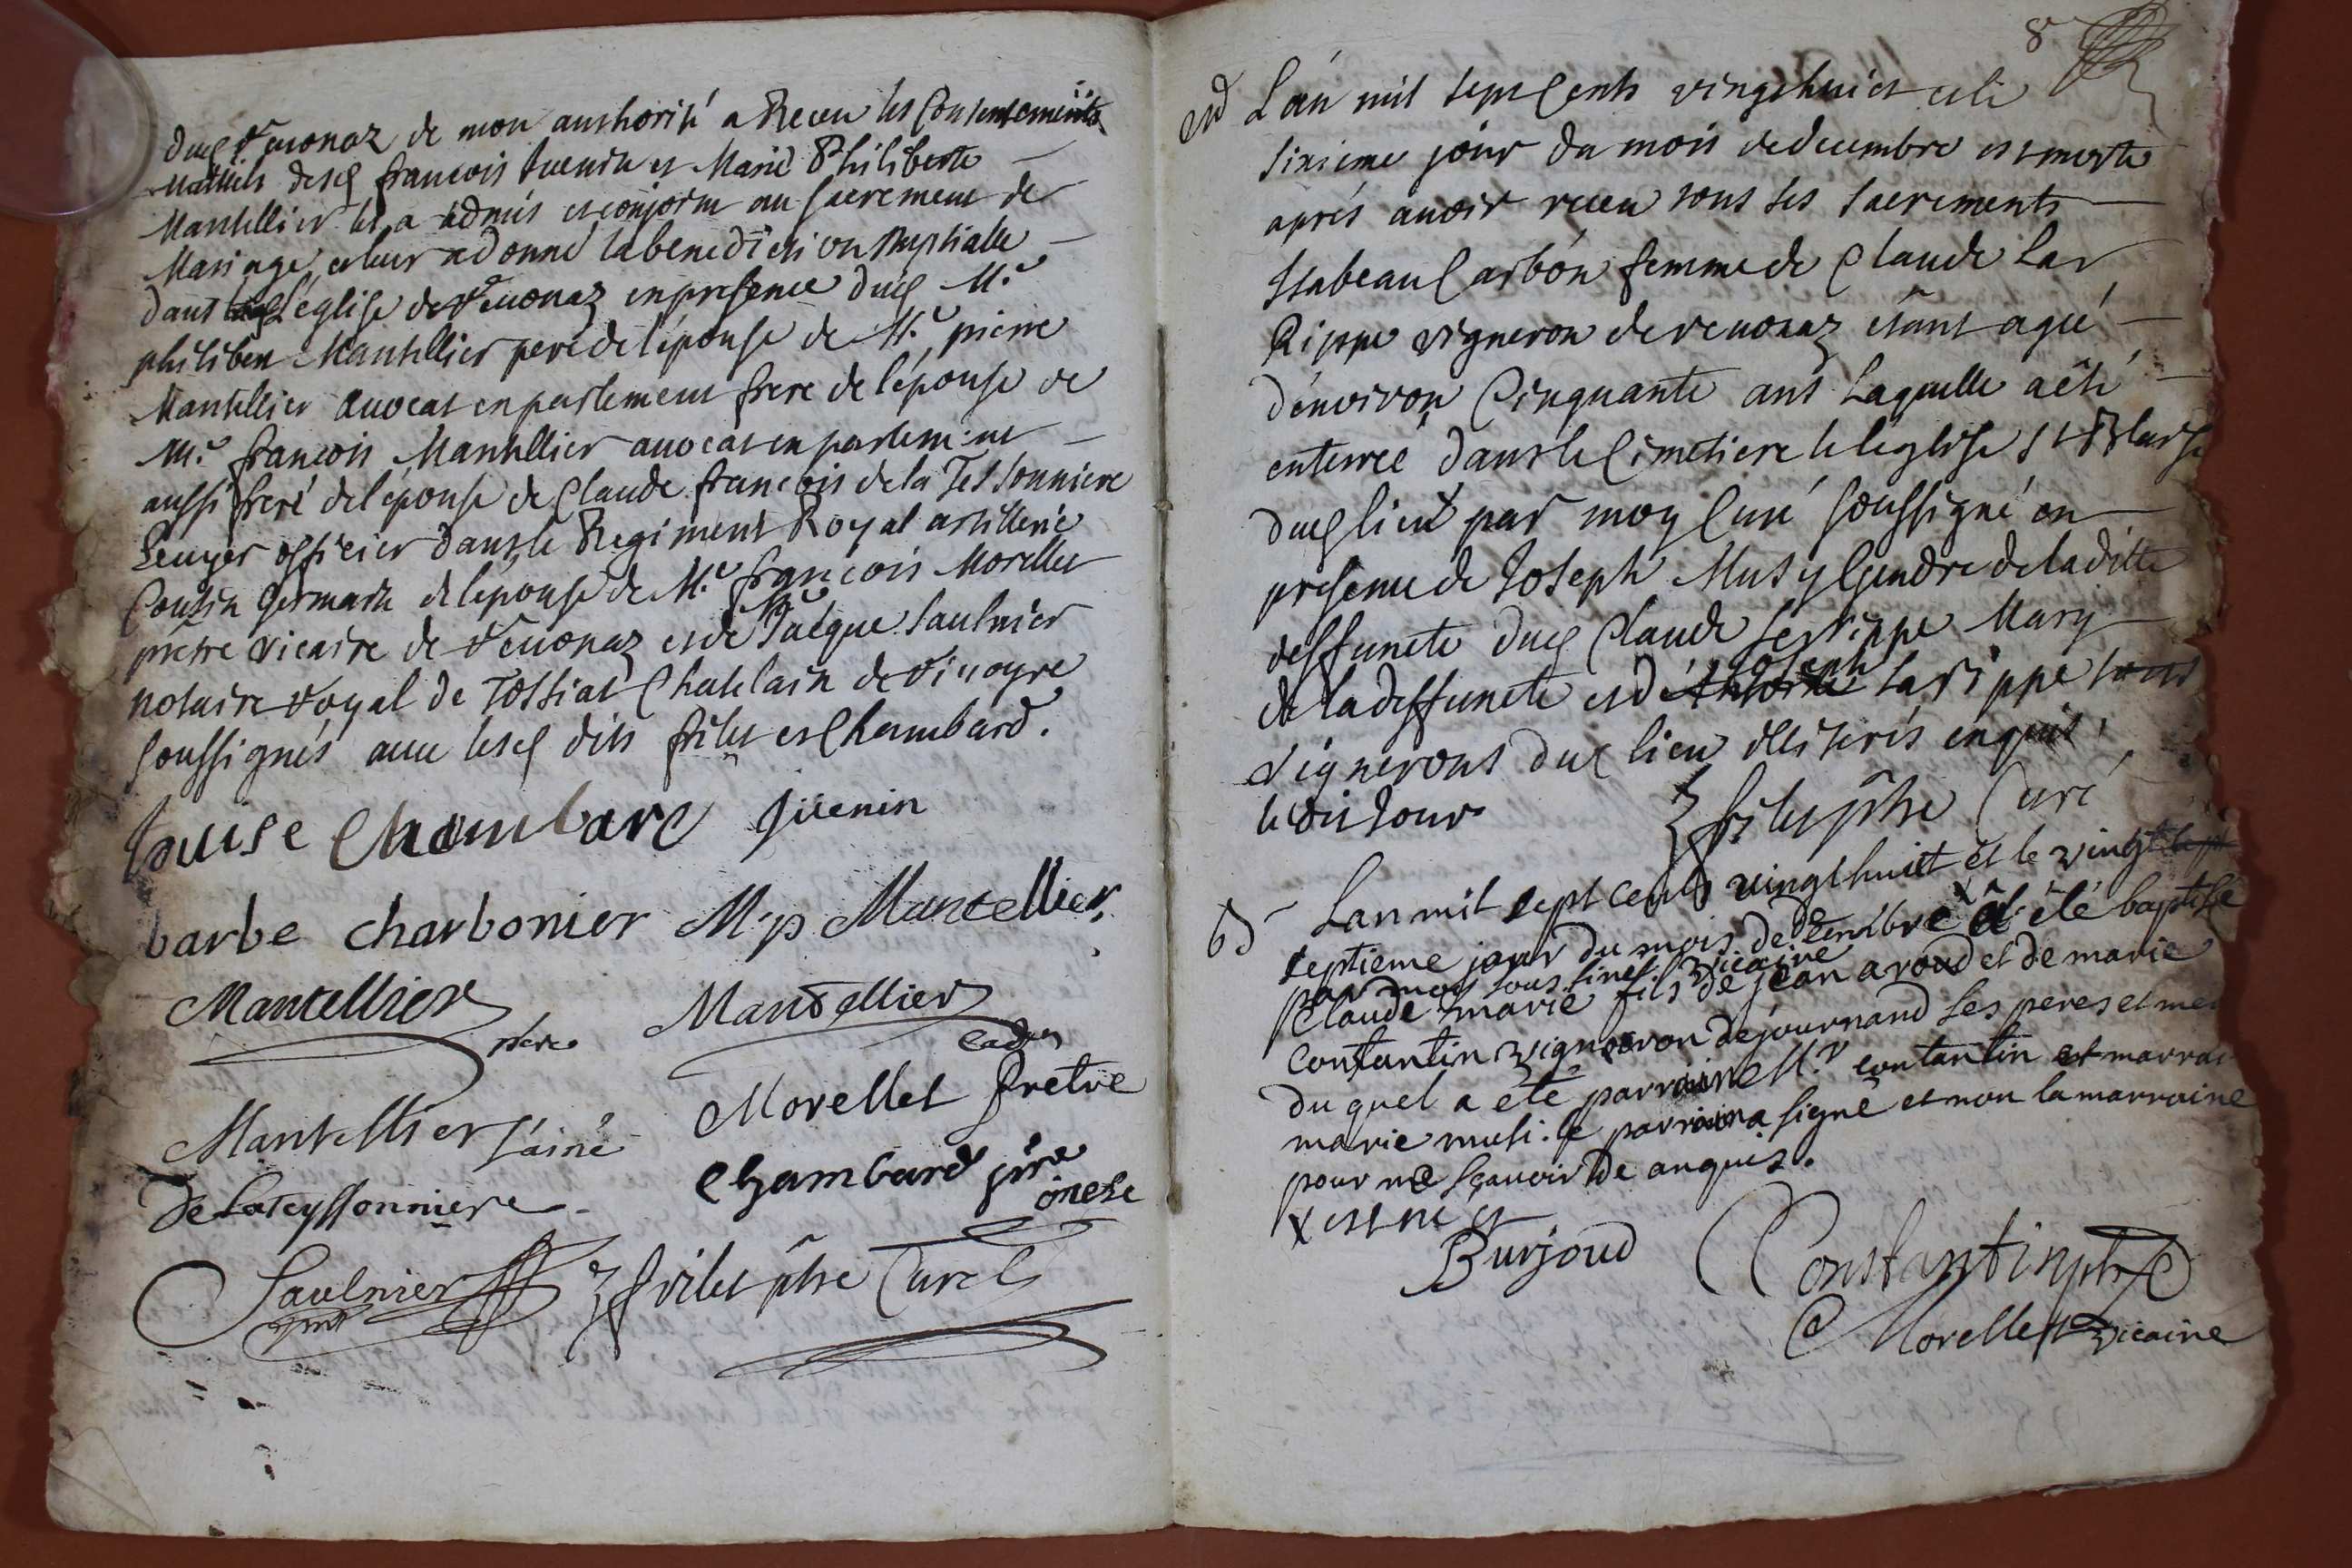 dud Veuonaz de mon authorité a Receu les Consentements
Mutuels desd françois Guenin et Marie Philiberte
Mantellier les a admis et conjoint au sacrement de
Mariage, et leur a donné la benediction Nuptialle
dans l'église de Veuonaz en presence dud Mr
philibert Mantellier pere de l'épouse de Mr pierre
Mantellier Avocat en parlement frere de l'épouse de
Mr françois Mantellier avocat en parlement
aussi frere de l'épouse de Claude françois de la Tessonniere
Ecuyer officier dans le Regiment Royal artillerie
Cousin Germain de l'épouse de Mr françois Morellet
prêtre vicaire de Veuonaz et de Jacque Saulnier
notaire Royal de Tossiat Chatelain de
soussignés avec lesd dits frilet et Chambard.
Louise Chambard Guenin
barbe charbonier M p Mantellier
Mantellier pere Mantellier cadet
Mantellier l'ainé Morellet Pretre
De Lateyssonniere Chambard
Saulnier frilet ptre Curé
8
L'an mil sept Cents vingt huict et le
sixieme jour du mois de decembre est morte
aprés avoir receu tous les sacrements
Isabeau Carbon femme de Claude La
Rippe vigneron de reuonaz étant agée
d'environ Cinquante ans Laquelle a êté
enterrée dans le Cimetiere de l'eglise
dud lieu par moy Curé soussigné en
presence de Joseph Musy Gendre de la ditte
deffuncte dud Claude La Rippe Mary
de la deffuncte et de Joseph La Rippe tous
vignerons dud lieu illiterés enquis
le dit Jour frilet ptre Curé
Lan mil sept cents vingt huict et le vingt
septieme jour du mois de decembre x a été baptisé
par moy sous signé vicaire
Claude marie fils de jean aroud et de marie
Contantin vigneron de journand ses peres et me
du quel a été parraine Mr contantin et marrai
marie musi. le parrain a signé et non la marraine
pour ne sçavoir de anquis.
x est né et
Burjoud Constantin ptre
Morellet vicaire